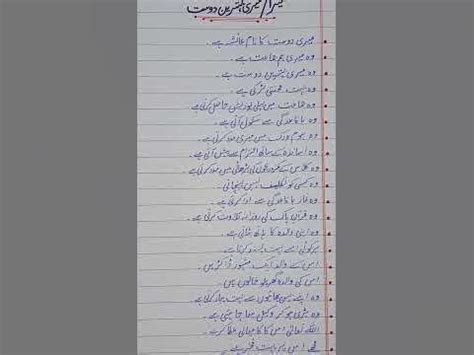 میرا / میری بہترین دوست
میری دوست کا نام عائشہ ہے۔
وہ میری ہم جماعت ہے۔
وہ میری بہترین دوست ہے۔
وہ بہت محنتی لڑکی ہے۔
وہ جماعت میں پہلی پوزیشن حاصل کرتی ہے۔
وہ باقاعدگی سے سکول آتی ہے۔
وہ ہوم ورک میں میری مدد کرتی ہے۔
وہ اساتذہ کے ساتھ احترام سے پیش آتی ہے۔
وہ کلاس کے کمزور بچوں کی پڑھائی میں مدد کرتی ہے۔
وہ کسی کو تکلیف نہیں پہنچاتی۔
وہ نماز باقاعدگی سے ادا کرتی ہے۔
وہ قرآن پاک کی روزانہ تلاوت کرتی ہے۔
وہ اپنی والدہ کا ہاتھ بٹاتی ہے۔
ہر کوئی اسے بہت پسند کرتا ہے۔
اس کے والد ایک مشہور ڈاکٹر ہیں۔
اس کی والدہ گھریلو خاتون ہیں۔
وہ اپنے بہن بھائیوں سے بہت پیار کرتی ہے۔
وہ بڑی ہو کر وکیل بننا چاہتی ہے۔
اللہ تعالیٰ اس کو کامیابی عطا کرے۔
مجھے اس پر بہت فخر ہے۔